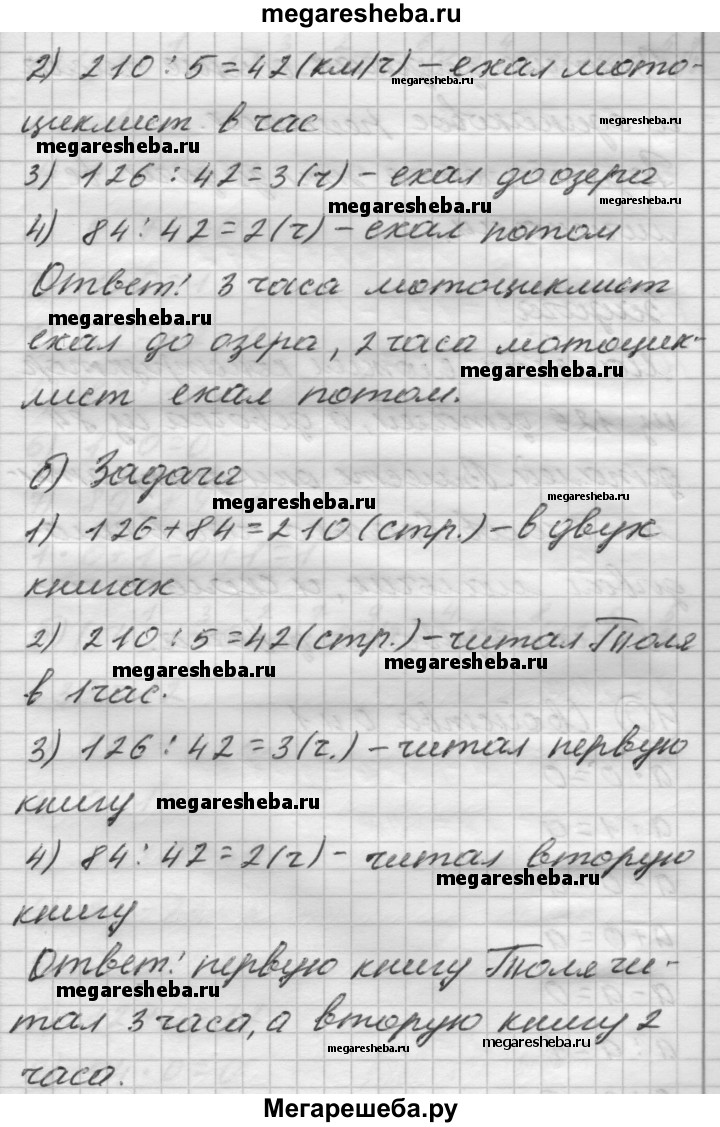 megaresheba.ru
2) 210 : 5 = 42 (км/ч) – ехал мото-
megaresheba.ru
megaresheba.ru
циклист в час
megaresheba.ru
3) 126 : 42 = 3 (ч) – ехал до озера
megaresheba.ru
4) 84 : 42 = 2 (ч) – ехал потом
Ответ: 3 часа мотоциклист
megaresheba.ru
ехал до озера, 2 часа мотоцик-
megaresheba.ru
лист ехал потом.
б) Задача
megaresheba.ru
megaresheba.ru
1) 126 + 84 = 210 (стр.) – в двух
книгах
2) 210 : 5 = 42 (стр.) – читал Толя
megaresheba.ru
megaresheba.ru
в 1 час.
3) 126 : 42 = 3 (ч.) – читал первую
книгу
megaresheba.ru
4) 84 : 42 = 2 (ч) – читал вторую
megaresheba.ru
книгу
Ответ: первую книгу Толя чи-
megaresheba.ru
тал 3 часа, а вторую книгу 2
megaresheba.ru
megaresheba.ru
часа.
Мегарешеба.ру